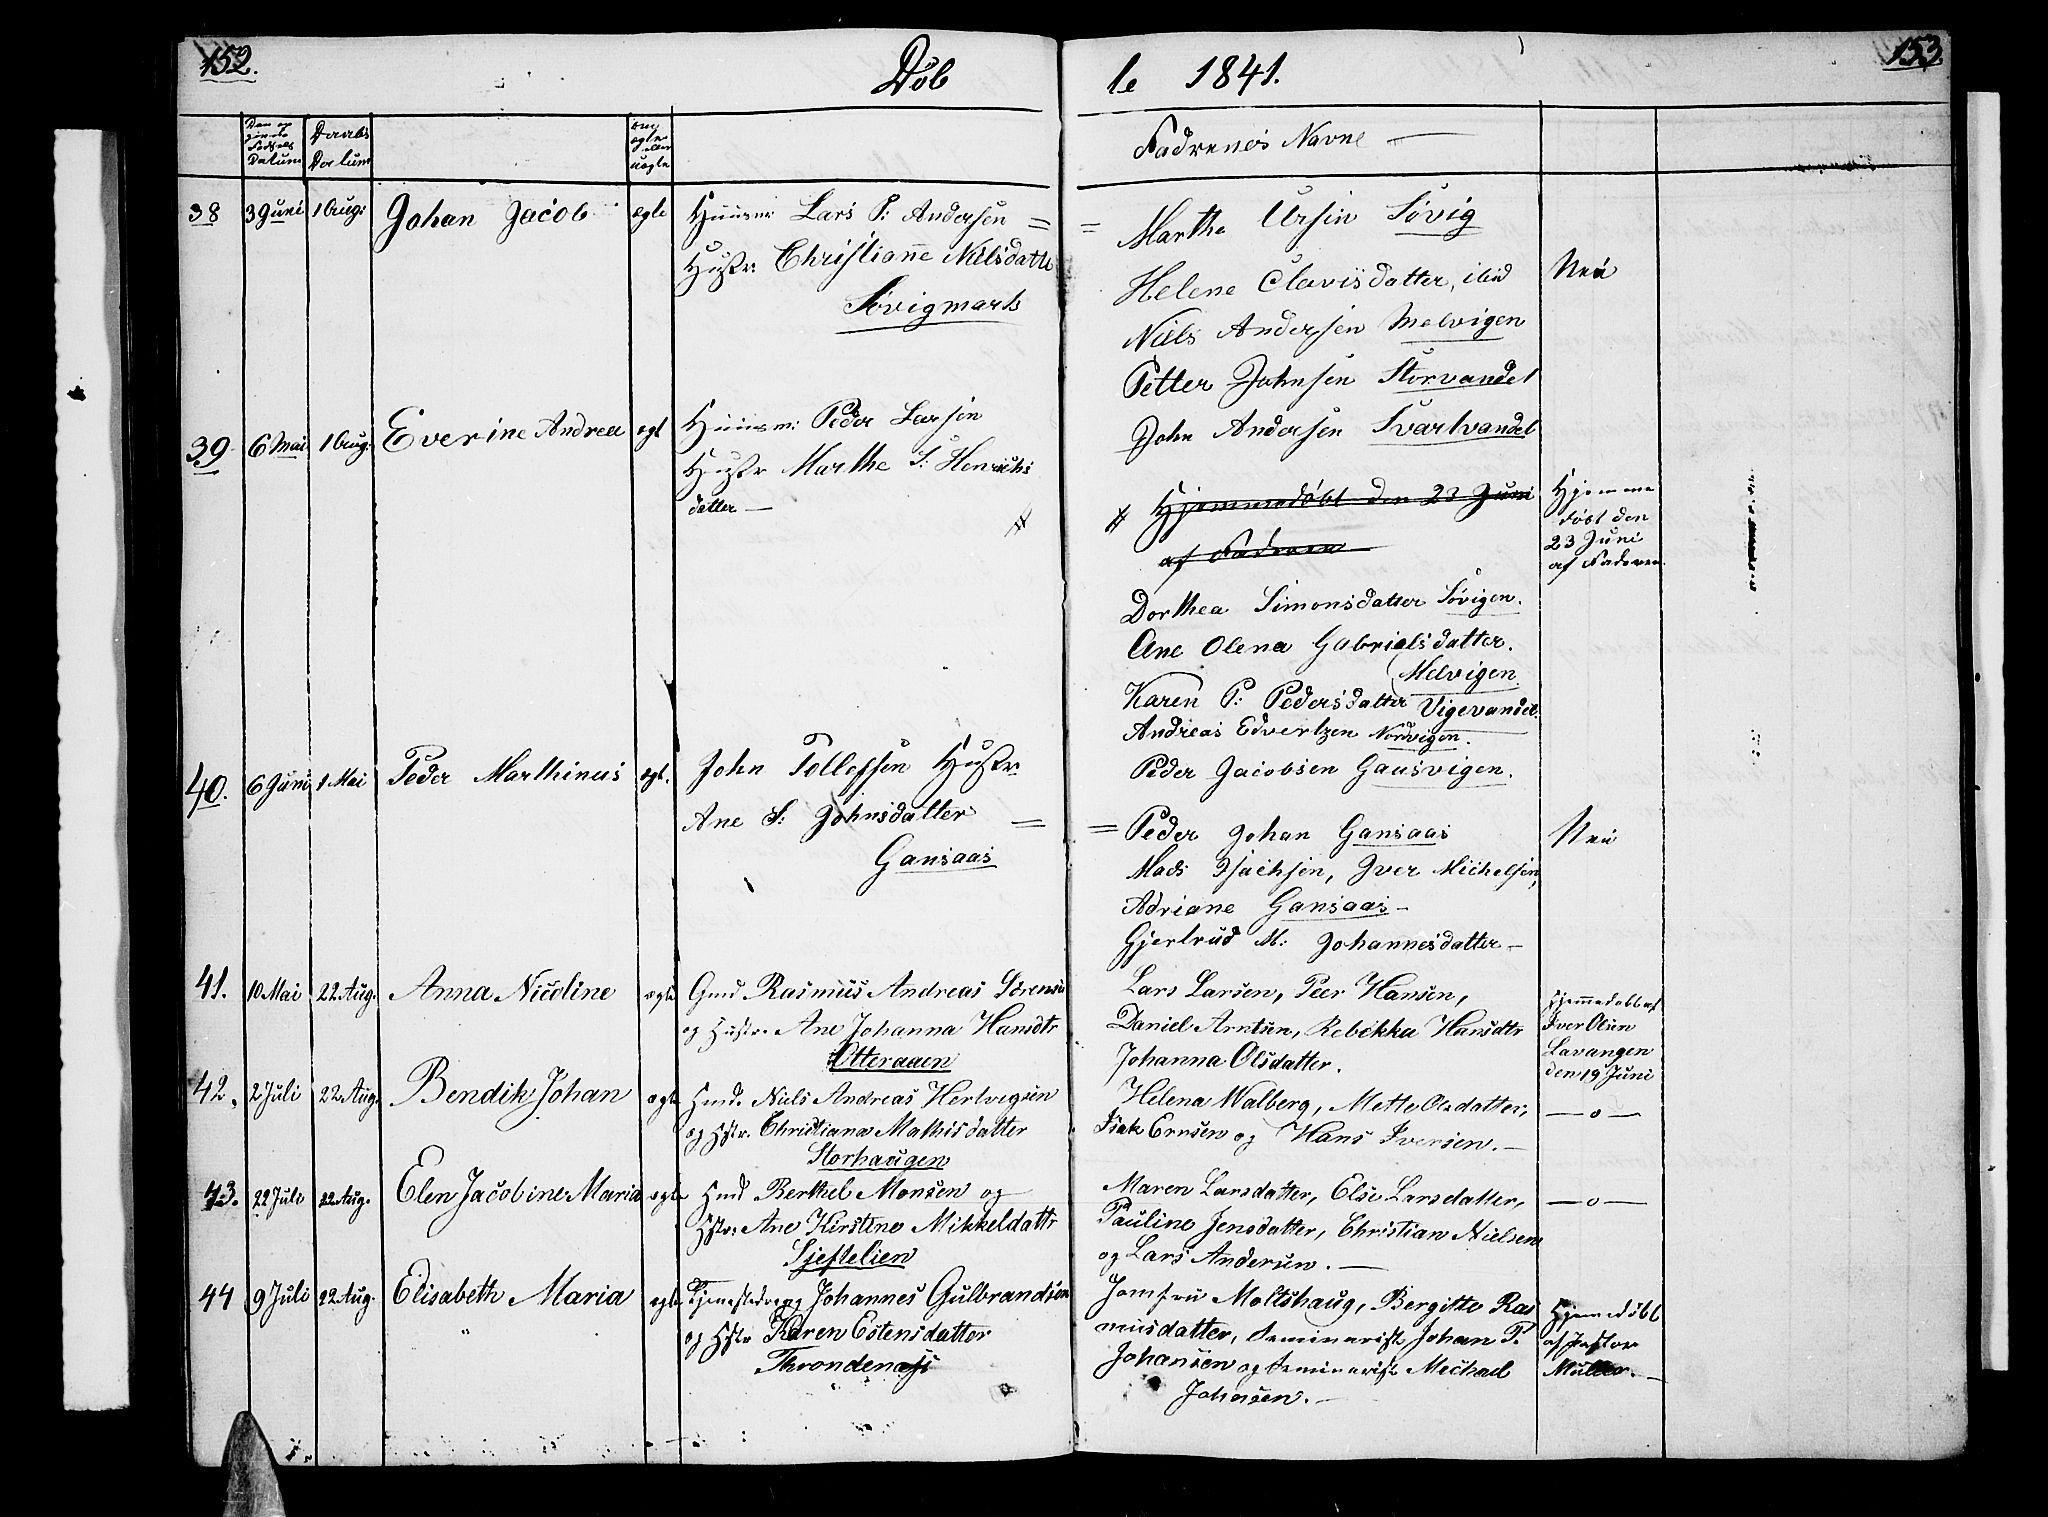 152.
Döb
le 1841.
153.
Datum
Daabs
Datum
ægte
eller
uægte
Fadrenes Navne —
38 3 Juni 1 Aug: Johan Jacob ægte Huusm: Lars P: Andersen =
Hustr: Christianne Nielsdatte
Sövigmark
= Martha Ursin Sövig
Helene Clavisdatter, ibid
Niels Andersen Melvigen
Petter Johnsen Storvandet
John Andersen Svartvandet
Nei
39 6 Mai 1 Aug: Everine Andrea ægt Huusm: Peder Larsen
Hustr Marthe S: Henrichs
datter —
#
# Hjemmedöbt den 23 Juni
af Faderen
Dorthea Simonsdatter Sövigen.
Ane Olena Gabrielsdatter.
Melvigen.
Karen P: Pedersdatter Vigevandet.
Andreas Edvertzen Nordvigen.
Peder Jacobsen Gausvigen.
Hjemme
döbt den
23 Juni
af Faderen
40. 6 Juni 1 Mai Peder Marthinus ægt. John Tollefsen Hustr:
Ane S: Johnsdatter =
Gansaas
= Peder Johan Gansaas
Mads Isachsen, Iver Michelsen,
Adriane Gansaas —
Gjertrud M: Johannesdatter —
Nei
41. 10 Mai 22 Aug. Anna Nicoline ægte Gmd Rasmus Andreas Sörensen
og Hustr. Ane Johanna Hansdtr
Otteraaen
Lars Larsen, Peer Hansen,
Daniel Arntsen, Rebekka Hansdtr
Johanna Olsdatter.
Hjemmedöbt af
Iver Olsen
Lavangen
den 19 Juni
42. 2 Juli 22 Aug. Bendik Johan ægte Hmd. Niels Andreas Hertvigsen
og Hstr. Christiana Mathisdatter
Storhaugen
Helena Walberg, Mette Olsdatter,
Isak Ernsen og Hans Iversen. —
— o —
43. 22 Juli 22 Aug. Elen Jacobine Maria ægte Hmd Berthel Monsen og
Hstr: Ane Kirstine Mikkeldattr
Sjeftelien
Maren Larsdatter, Else Larsdatter,
Pauline Jensdatter, Christian Nielsen
og Lars Andersen. —
— o —
44 9 Juli 22 Aug. Elisabeth Maria ægte Tjenestedreng Johannes Gulbrandsen
og Hstr Karen Estensdatter
Throndenæs
Jomfru Moltshaug, Bergitte Ras
musdatter, Seminarist Johan P.
Johansen og Seminarist Michael
Johnsen. —
Hjemedöbt
af Pastor
Müller. —